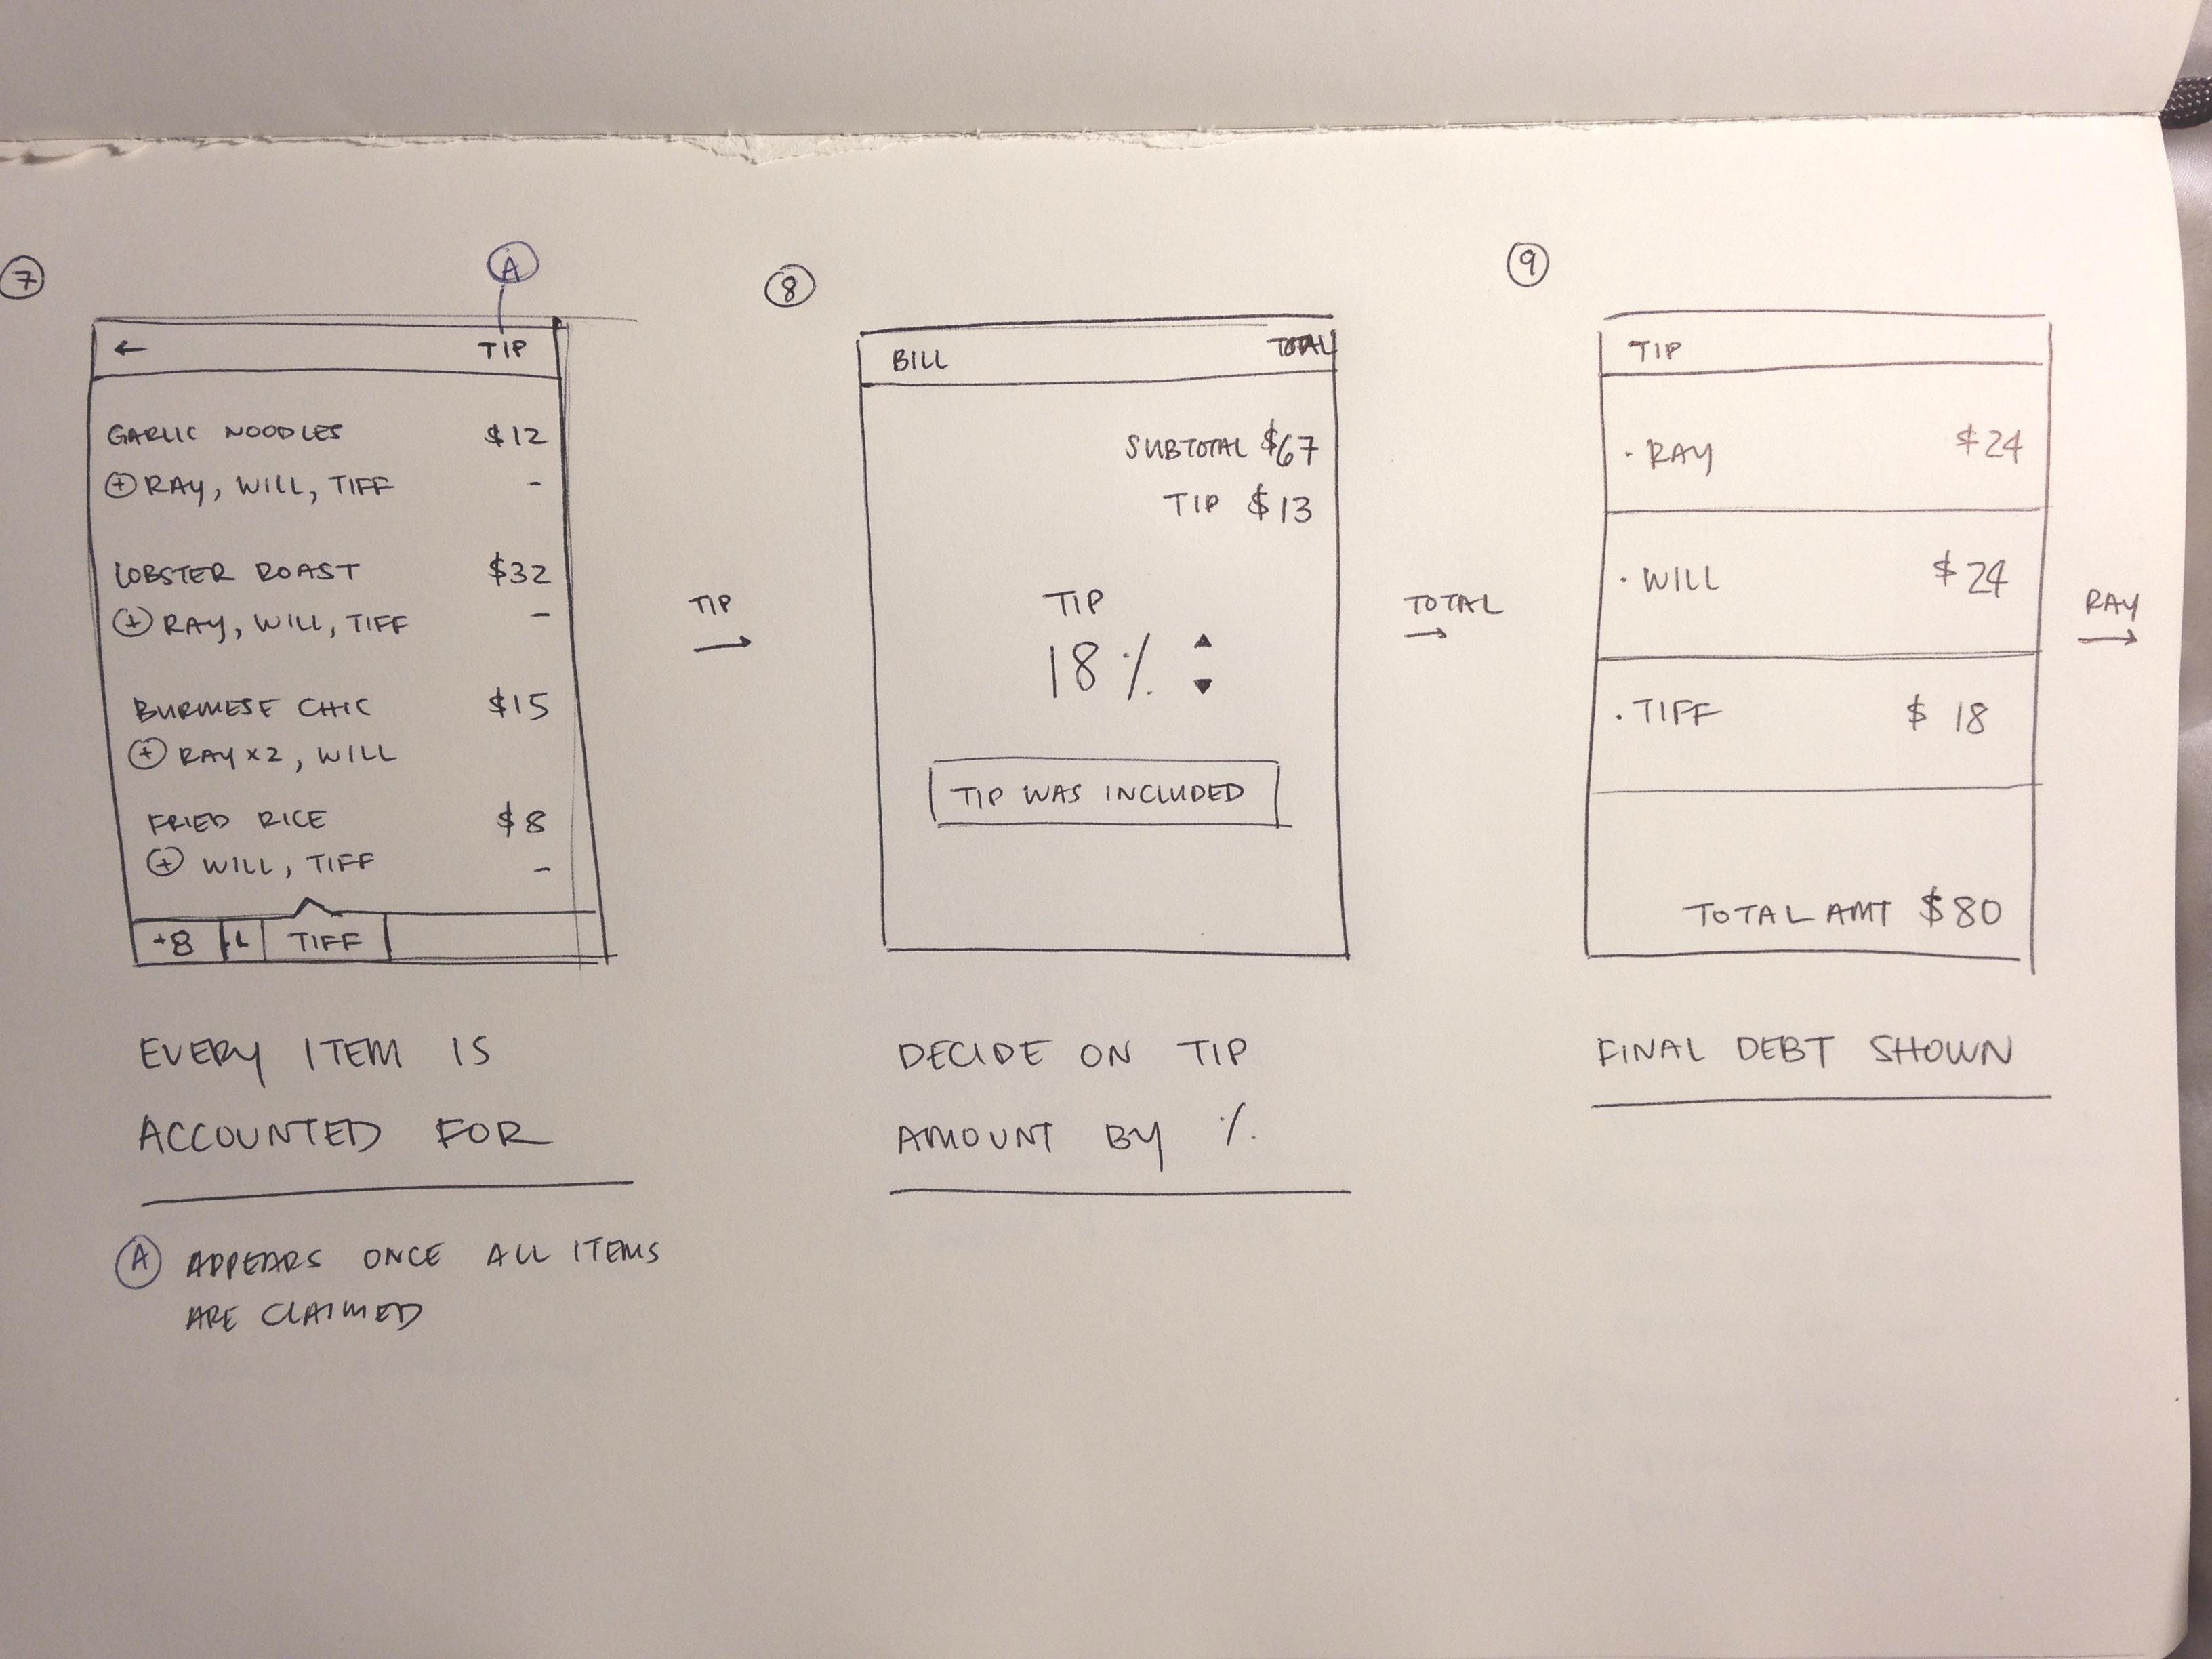 7
A
← TIP
GARLIC NOODLES $12
+ RAY, WILL, TIFF -
LOBSTER ROAST $32
+ RAY, WILL, TIFF -
BURMESE CHIC $15
+ RAY x2, WILL
FRIED RICE $8
+ WILL, TIFF -
+8 TIFF
EVERY ITEM IS
ACCOUNTED FOR
A APPEARS ONCE ALL ITEMS
ARE CLAIMED
TIP
→
8
BILL TOTAL
SUBTOTAL $67
TIP $13
TIP
18%
TIP WAS INCLUDED
DECIDE ON TIP
AMOUNT BY %
TOTAL
→
9
TIP
· RAY $24
· WILL $24
· TIFF $18
TOTAL AMT $80
FINAL DEBT SHOWN
RAY
→